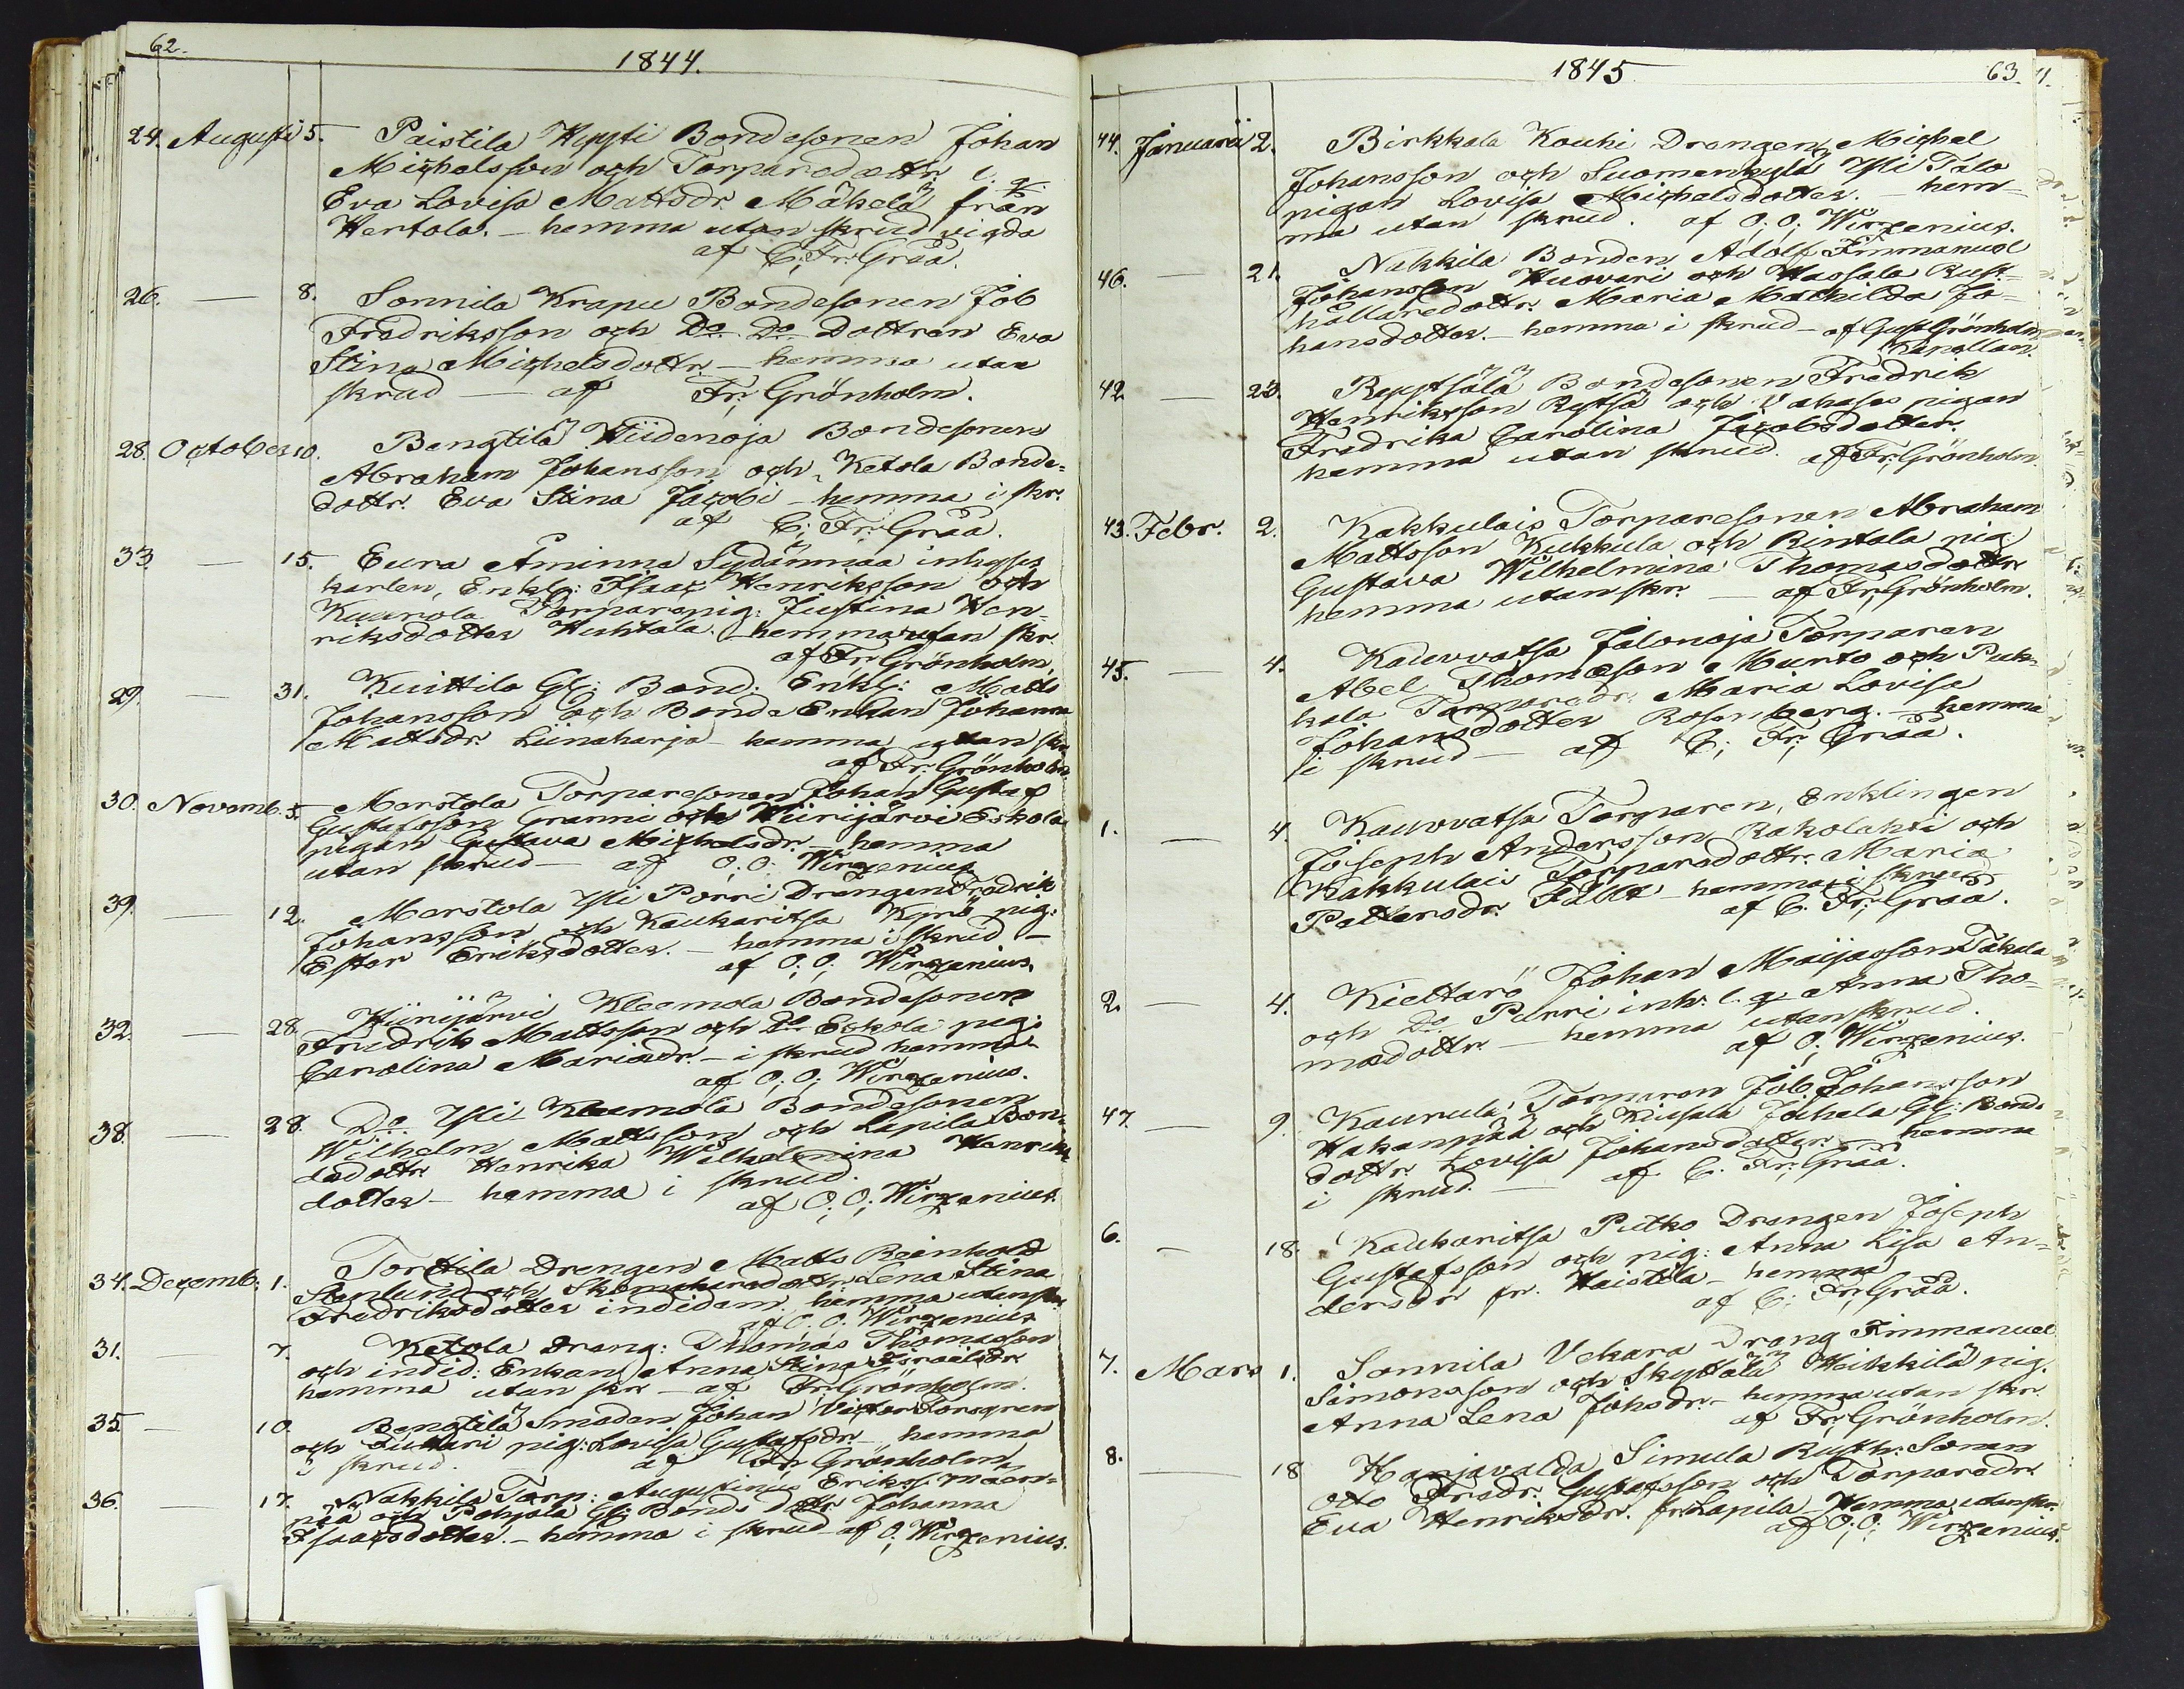 62.
1844.
24. Augusti 5. Paistila Hyysti Bondesonen Johan
Michelsson och Torparedottr. l. q.
Eva Lovisa Mattsdr. Mäkelä från
Hertola. - hemma utan skrud vigda
af C; Fr; Gråå.
26. — 8. Sonnila Krapu Bondesonen Job
Fredriksson och Do Do Dottren Eva
Stina Michelsdottr. - hemma utan
skrud — af Fr; Grönholm.
28. October 10. Bengtilä Hiidenoja Bondesonen
Abraham Johansson och Ketola Bonde-
dottr. Eva Stina Jacobi - hemma i skr.
af C; Fr; Gråå.
33. — 15. Eura Aminna Sydänmaa inhyses
karlen, Enkl: Isaac Henriksson och
Kuurola Torparepig: Justina Hen-
riksdotter Huhtala. hemma utan skr.
af Fr; Grönholm.
29. — 31. Kuittila Gl: Bond: Enkl: Matts
Johansson och Bonde Enkan Johanna
Mattsdr. Liinaharja - hemma utan skr.
af Fr; Grönholm.
30. Novemb. 5. Merstola Torparesonen Johan Gustaf
Gustafsson Granni och Hiirijärvi Eskola
pigan Gustava Michelsdr. - hemma
utan skrud — af O; O; Wirzenius
39. — 12. Merstola Yli Porri Drängen Fredrik
Johansson och Kaukaritsa Kyrö pig:
Ester Eriksdotter. - hemma i skrud -
af O; O; Wirzenius.
32. — 28. Hiirijärvi Kleemola Bondesonen
Fredrik Mattsson och Do Eskola pig:
Carolina Mariædr. - i skrud hemma -
af O; O; Wirzenius.
38. — 28. Do Yli Kleemola Bondesonen
Wilhelm Mattsson och Lapila Bon-
dedottr. Henrika Wilhelmina Henriks-
dotter - hemma i skrud.
af O; O; Wirzenius.
34. Decemb: 1. Torttila Drengen Matts Reinhold
Stenlund och Skomakaredottr. Lena Stina
Fredriksdotter indidem. hemma utan skr.
af O. O. Wirzenius
31. — 7. Ketola Dräng: Thomas Thomasson
och indid: Enkan Anna Stina Israelsdr.
hemma utan skr — af Fr; Grönholm.
35. — 10. Bengtilä Smeden Johan Victor Forsgren
och pig: Lovisa Gustafsdr. - hemma
i skrud. af Fr; Grönholm
36. — 17. Nakkila Torp: Augustinus Erikss. Mäen-
pää och Pohjala Gl; Bonde dottr. Johanna
Isaacsdotter. - hemma i skrud af O; Wirzenius.
1845
63.
44. Januarii 2. Birkkala Kouhi Drängen Michel
Johansson och Suomenkylä Yli Talo
pigan Lovisa Michelsdotter. - hem-
ma utan skrud. af O; O; Wirzenius.
46. — 21. Nakkila Bonden Adolf Emmanuel
Johansson Huovari och Hassala Rust-
hållaredottr. Maria Mathilda Jo-
hansdotter. - hemma i skrud - af Gust Grönholm
Kapellan.
42 — 23. Ryytsälä Bondesonen Fredrik
Henriksson Rytsä och Vahases pigan
Fredrika Carolina Jacobsdotter.
hemma utan skrud. af Fr; Grönholm
43. Febr. 2. Kakkulais Torparesonen Abraham
Mattsson Kukkula och Rintala pig
Gustava Wilhelmina Thomasdottr.
hemma utan skr. — af Fr; Grönholm.
45. — 4. Kauvvatsa Jalonoja Torparen
Abel Thomæson Murto och Puk-
kala Torparedr. Maria Lovisa
Johansdotter Rosenberg. - hemma
i skrud — af C; Fr; Gråå.
1. — 4. Kauvvatsa Torparen, Enklingen
Joseph Andersson Rakolahti och
Kakkulais Torparedottr. Maria
Pettersdr. Fält - hemma i skrud
af C. Fr; Gråå.
2. — 4. Kiettarö Johan Maijasson Takala
och Do Purri inh: l. q. Anna Tho-
mædottr. — hemma utan skrud.
af O; Wirzenius.
47. — 9. Kaurula, Torparen Job Johansson
Hakanpää och Kiusala Juhela Gl: Bond-
dottr. Lovisa Johansdotter - hemma
i skrud. — af C. Fr; Gråå.
6. — 18. Kaukaritsa Putko Drängen Joseph
Gustafsson och pig: Anna Lisa An-
dersdr. fr. Haistila - hemma
af C; Fr; Gråå.
7. Mars 1. Sonnila Vekara Dräng Emmanuel
Simonsson och Skyttälä Heikkilä pig.
Anna Lena Johsdr. - hemma utan skr.
af Fr; Grönholm.
8. — 18 Harjavalda Simula Rusth: Sonen
Otto Fredr. Gustafsson och Torparedr.
Eva Henriksdr. fr. Lapila - Hemma utan skr.
af O; O; Wirzenius.